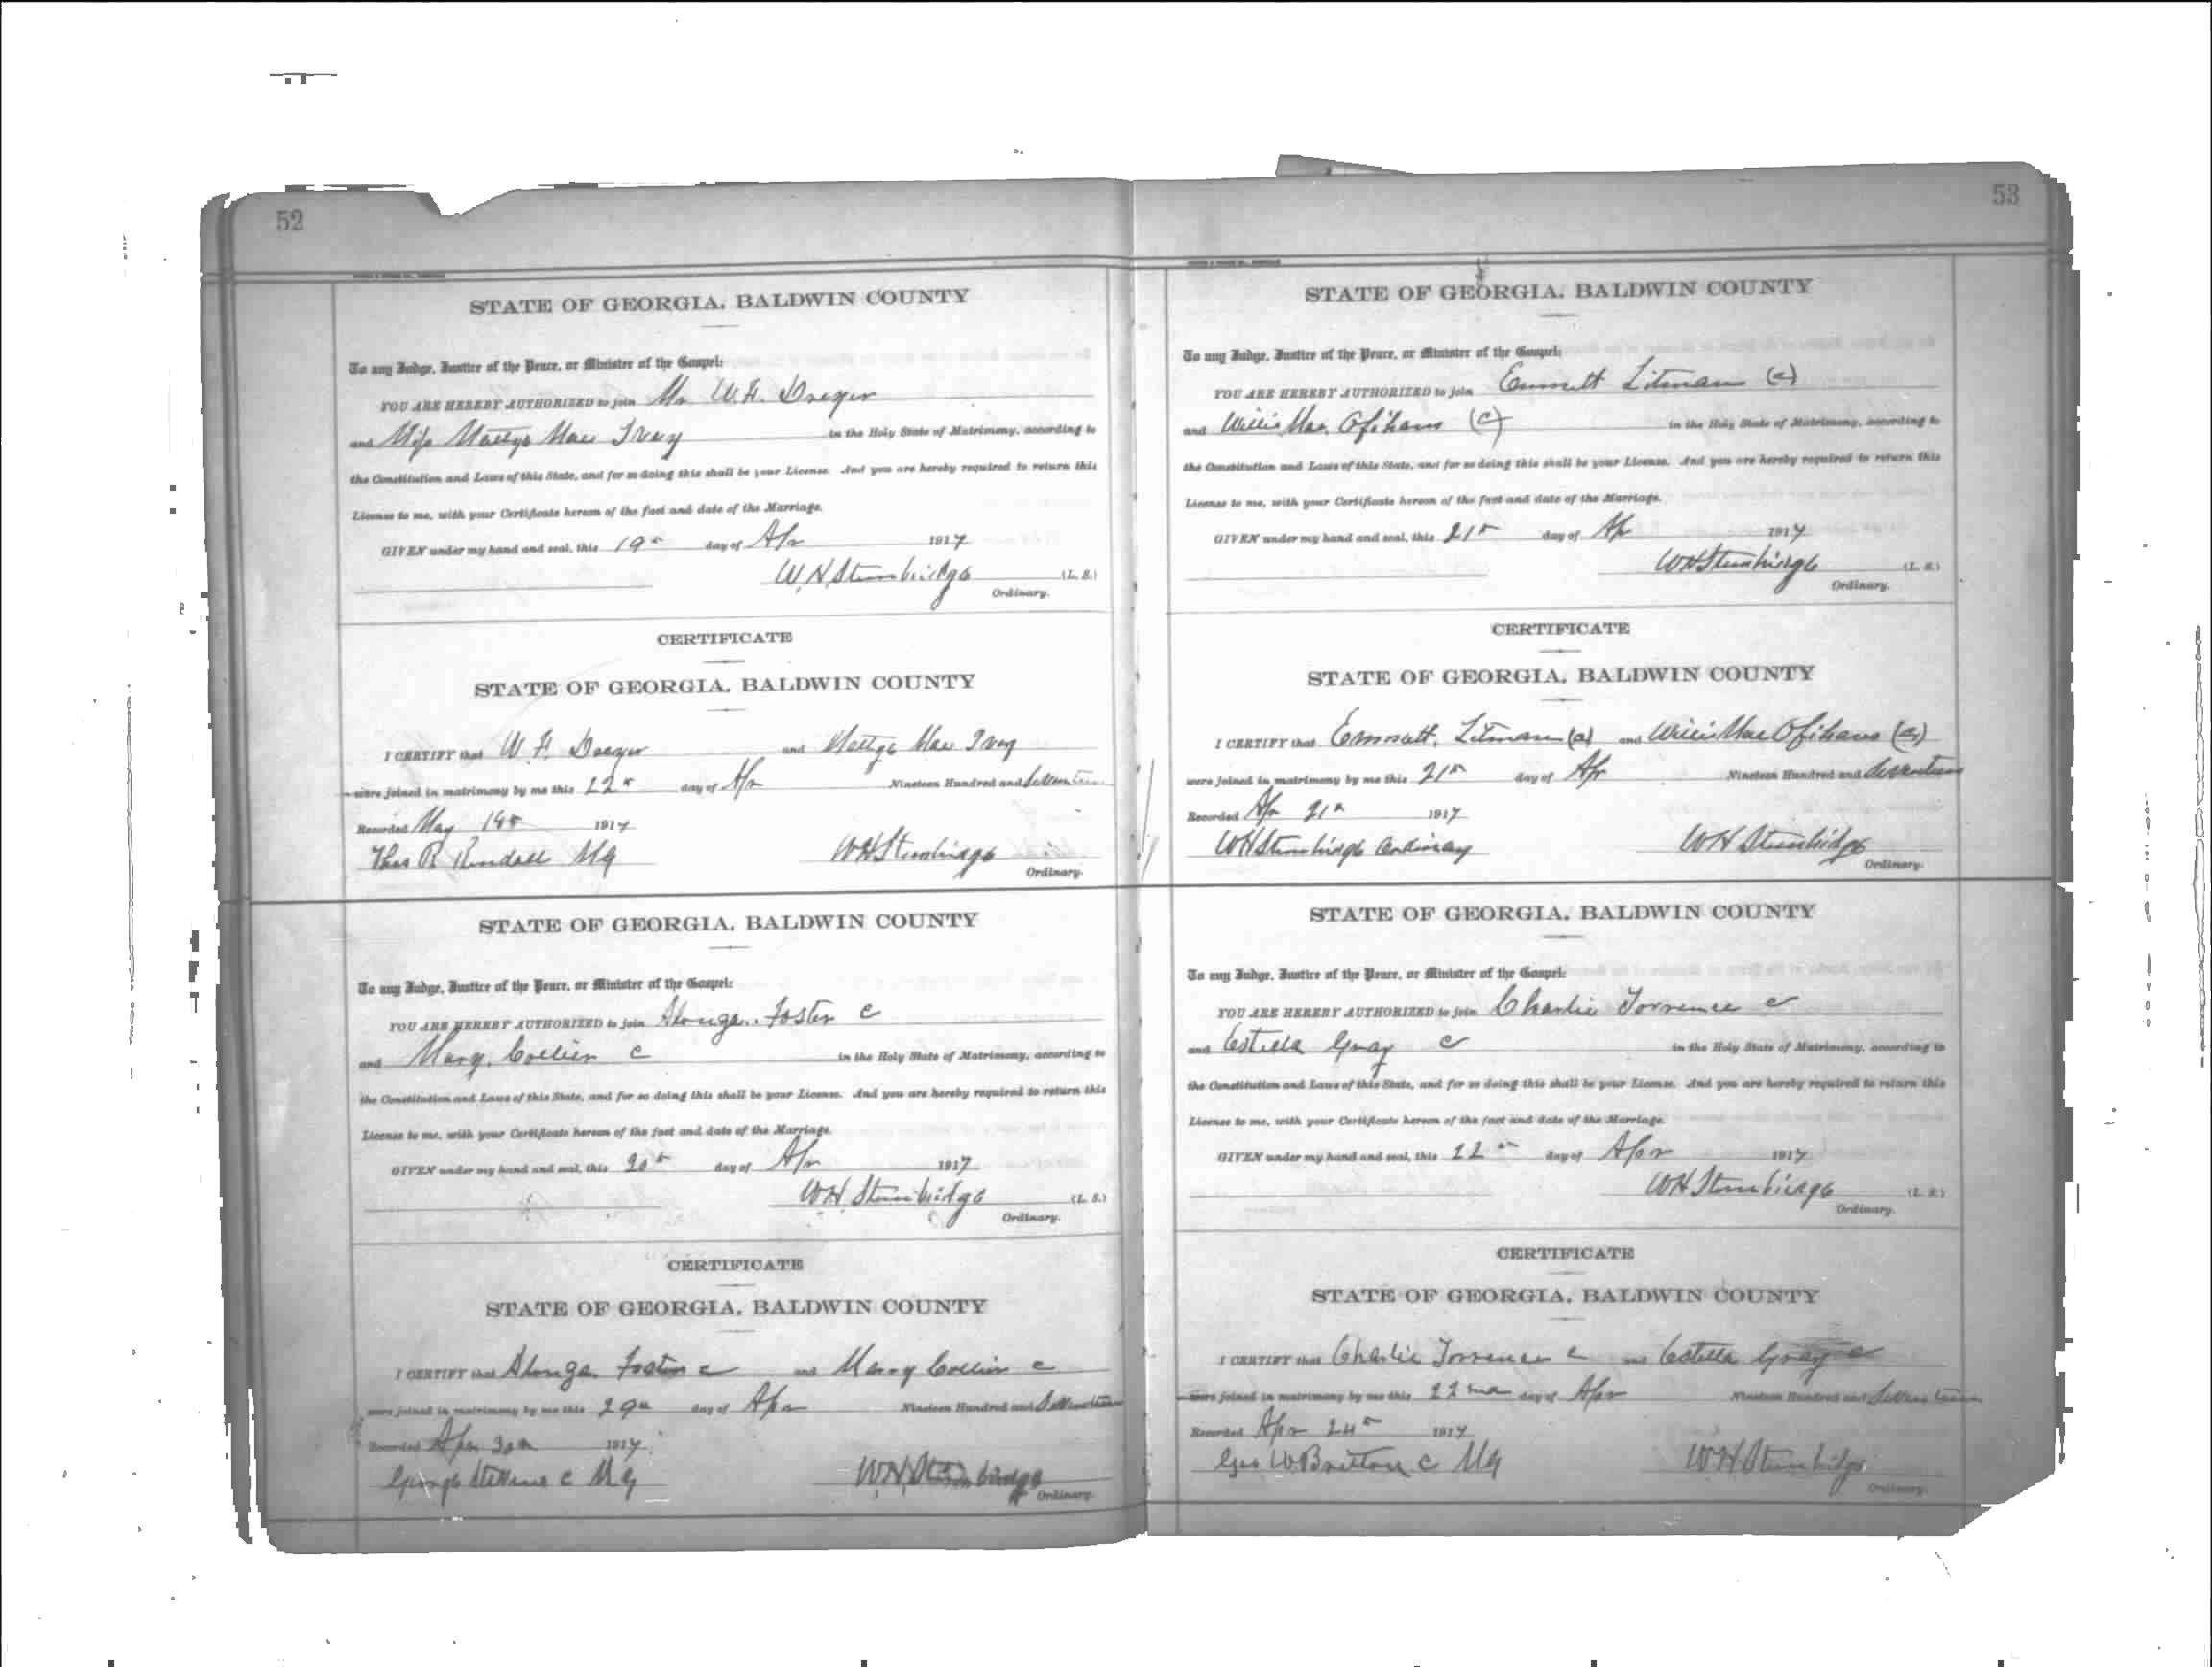 52
STATE OF GEORGIA, BALDWIN COUNTY
To any Judge, Justice of the Peace, or Minister of the Gospel:
YOU ARE HEREBY AUTHORIZED to join Mr W. H.
and Miss Mattye Mae Ivey in the Holy State of Matrimony, according to
the Constitution and Laws of this State, and for so doing this shall be your License. And you are hereby required to return this
License to me, with your Certificate hereon of the fact and date of the Marriage.
GIVEN under my hand and seal, this 19th day of Apr 1917
W H Stembridge (L. S.)
Ordinary.
CERTIFICATE
STATE OF GEORGIA, BALDWIN COUNTY
I CERTIFY that W. H. and Mattye Mae Ivey
were joined in matrimony by me this 22 day of Apr Nineteen Hundred and Seventeen
Recorded May 1917
Thos R Kendall MG W H Stembridge
Ordinary.
STATE OF GEORGIA, BALDWIN COUNTY
To any Judge, Justice of the Peace, or Minister of the Gospel:
YOU ARE HEREBY AUTHORIZED to join Alonza Foster c
and Mary Collier c in the Holy State of Matrimony, according to
the Constitution and Laws of this State, and for so doing this shall be your License. And you are hereby required to return this
License to me, with your Certificate hereon of the fact and date of the Marriage.
GIVEN under my hand and seal, this 20th day of Apr 1917
W H Stembridge (L. S.)
Ordinary.
CERTIFICATE
STATE OF GEORGIA, BALDWIN COUNTY
I CERTIFY that Alonza Foster c and Mary Collier c
were joined in matrimony by me this 29th day of Apr Nineteen Hundred and Seventeen
Recorded Apr 30th 1917
George c MG W H Stembridge
Ordinary.
53
STATE OF GEORGIA, BALDWIN COUNTY
To any Judge, Justice of the Peace, or Minister of the Gospel:
YOU ARE HEREBY AUTHORIZED to join Emmett Litman (c)
and Willie Mae (c) in the Holy State of Matrimony, according to
the Constitution and Laws of this State, and for so doing this shall be your License. And you are hereby required to return this
License to me, with your Certificate hereon of the fact and date of the Marriage.
GIVEN under my hand and seal, this 21st day of Apr 1917
W H Stembridge (L. S.)
Ordinary.
CERTIFICATE
STATE OF GEORGIA, BALDWIN COUNTY
I CERTIFY that Emmett Litman (c) and Willie Mae (c)
were joined in matrimony by me this 21st day of Apr Nineteen Hundred and Seventeen
Recorded Apr 21st 1917
W H Stembridge Ordinary W H Stembridge
Ordinary.
STATE OF GEORGIA, BALDWIN COUNTY
To any Judge, Justice of the Peace, or Minister of the Gospel:
YOU ARE HEREBY AUTHORIZED to join Charlie Torrence c
and Estella Gray c in the Holy State of Matrimony, according to
the Constitution and Laws of this State, and for so doing this shall be your License. And you are hereby required to return this
License to me, with your Certificate hereon of the fact and date of the Marriage.
GIVEN under my hand and seal, this 22 day of Apr 1917
W H Stembridge (L. S.)
Ordinary.
CERTIFICATE
STATE OF GEORGIA, BALDWIN COUNTY
I CERTIFY that Charlie Torrence c and Estella Gray c
were joined in matrimony by me this 22nd day of Apr Nineteen Hundred and Seventeen
Recorded Apr 24th 1917
Geo W Britton c MG W H Stembridge
Ordinary.